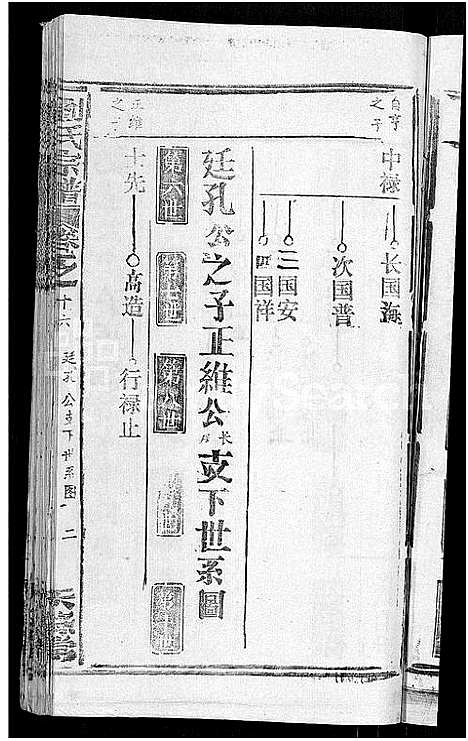 自亨之子
中禄
长国海
次国普
三国安
四国祥
廷孔公之子正維公长房支下世系圖
第六世
第七世
第八世
第九世
第十世
正维之子
士先
高造
行禄止
劉氏宗譜
十六
廷孔公支下世系图
二